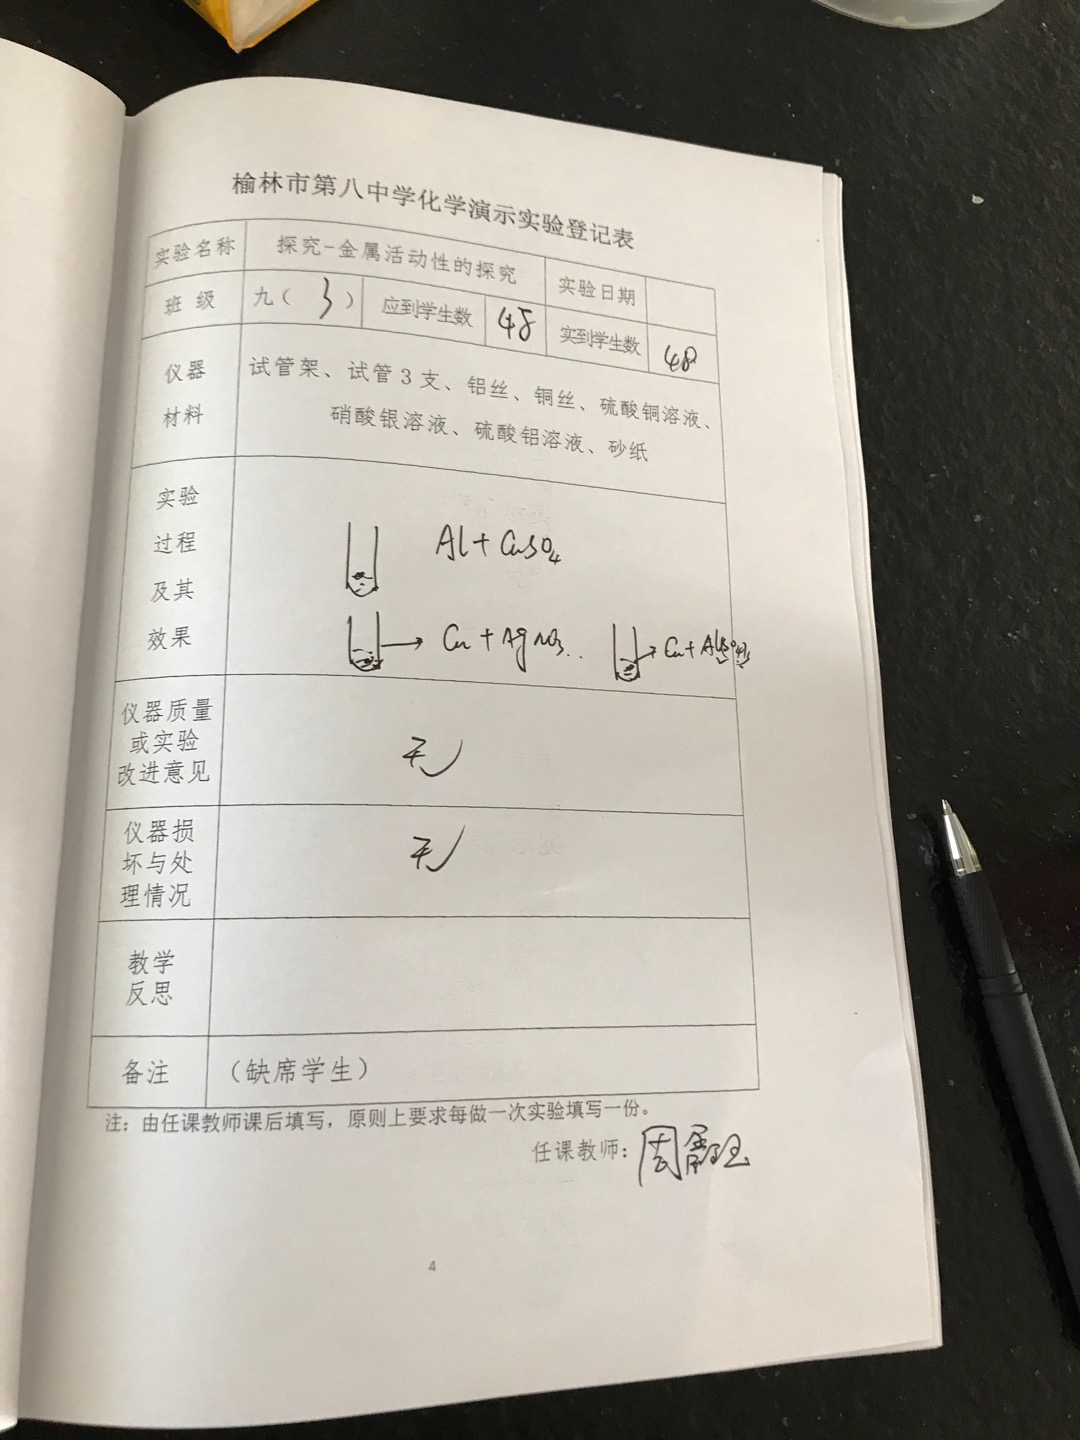 榆林市第八中学化学演示实验登记表
实验名称 探究-金属活动性的探究 实验日期
班 级 九（ 3 ） 应到学生数 48 实到学生数 48
仪器
材料
试管架、试管3支、铝丝、铜丝、硫酸铜溶液、
硝酸银溶液、硫酸铝溶液、砂纸
实验
过程
及其
效果
Al + CuSO4
Cu + AgNO3.. Cu + Al2(SO4)3
仪器质量
或实验
改进意见
无
仪器损
坏与处
理情况
无
教学
反思
备注 （缺席学生）
注：由任课教师课后填写，原则上要求每做一次实验填写一份。
任课教师：周
4